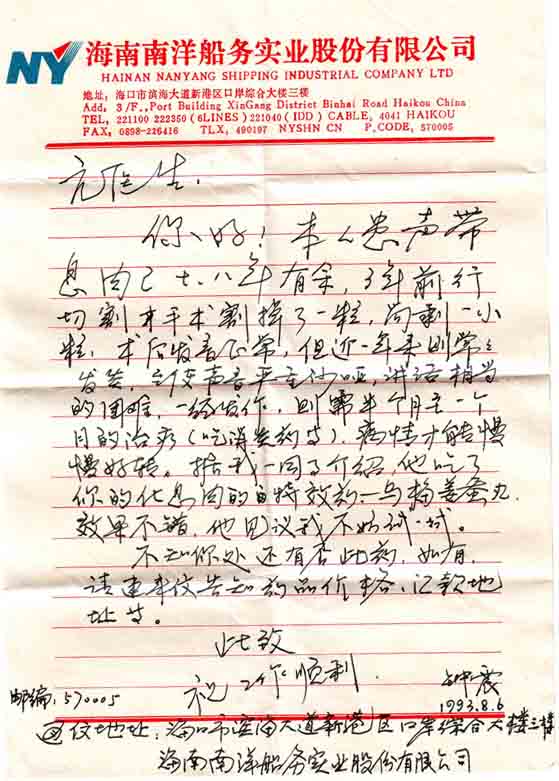 NY 海南南洋船务实业股份有限公司
HAINAN NANYANG SHIPPING INDUSTRIAL COMPANY LTD
地址: 海口市滨海大道新港区口岸综合大楼三楼
Add, 3/F., Port Building XinGang District Binhai Road Haikou China
TEL, 221100 222350 (6LINES) 221040 (IDD) CABLE, 4041 HAIKOU
FAX, 0898-226416 TLX, 490197 NYSHN CN P.CODE, 570005
医生.
你好! 本人患声带
息肉已七.八年有余, 3年前行
切割术手术割掉了一粒, 尚剩一小
粒. 术后发音正常, 但近一年来则常々
发炎, 致使声音严重沙哑, 讲话相当
的困难, 一经发作, 则需半个月至一个
月的治疗(吃消炎药等), 病情才能慢
慢好转。据我一同事介绍, 他吃了
你的化息肉的特效药—乌梅姜蚕丸.
效果不错, 他见议我不妨试一试。
不知你处还有否此药, 如有,
请速来信告知药品价格、汇款地
址等。
此致
祝工作顺利
钟震
1993.8.6
邮编: 570005
回信地址: 海口市滨海大道新港区口岸综合大楼三楼
海南南洋船务实业股份有限公司